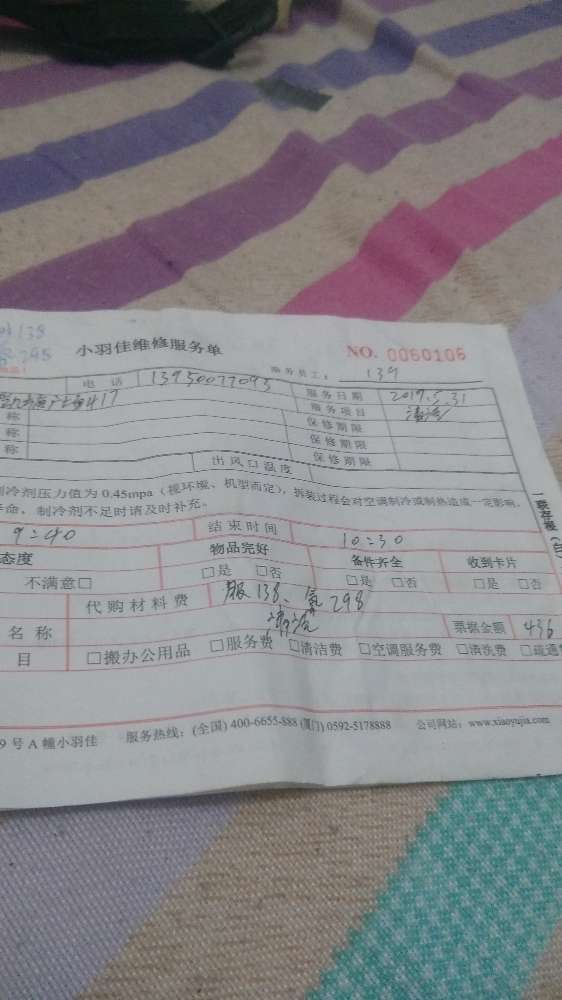 138
298
小羽佳维修服务单
NO. 0060106
服务员工: 139
电 话 13950077093 服务日期 2019.5.31
417 服务项目 清洗
称 保修期限
称 保修期限
称 保修期限
出风口温度
制冷剂压力值为 0.45mpa（视环境、机型而定），拆装过程会对空调制冷或制热造成一定影响。
寿命，制冷剂不足时请及时补充。
9:40 结束时间 10:30
态度 物品完好 备件齐全 收到卡片
不满意□ □是 □否 □是 □否 □是 □否
代购材料费 服138、氟298
名 称 清洗 票据金额 436
目 □搬办公用品 □服务费 □清洁费 □空调服务费 □清洗费 □疏通
9 号 A 幢小羽佳 服务热线：(全国) 400-6655-888 (厦门) 0592-5178888 公司网站：www.xiaoyujia.com
一联存根（白